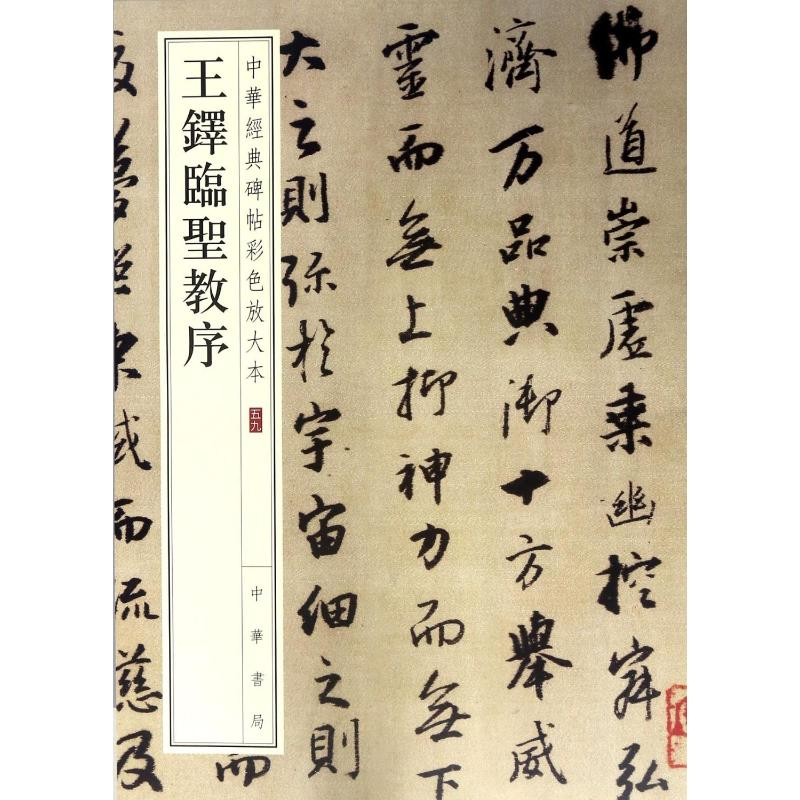 佛道崇虛乘幽控寂弘
濟万品典御十方舉威
靈而無上抑神力而無下
大之則弥於宇宙細之則
中華經典碑帖彩色放大本
五九
中華書局
王鐸臨聖教序
而
夢東域而流慈及